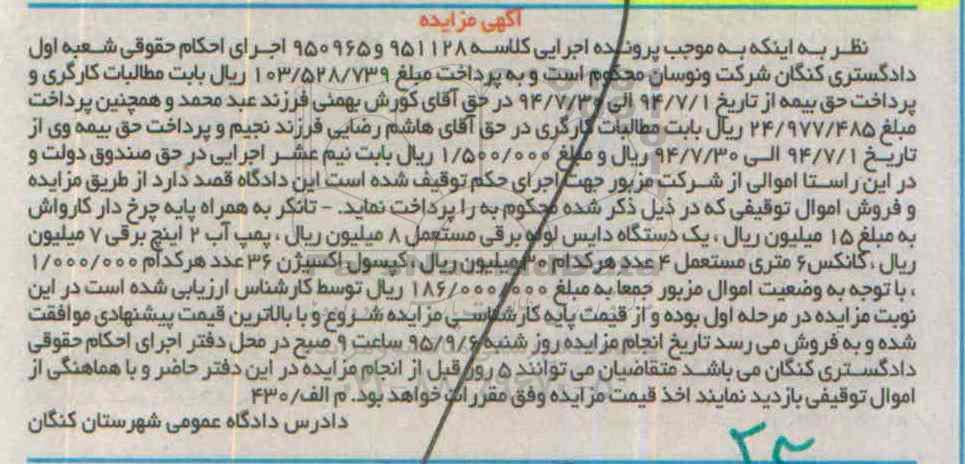 آگهی مزایده
نظر به اینکه به موجب پرونده اجرایی کلاسه ۹۵۱۱۲۸ و ۹۵۰۹۶۵ اجرای احکام حقوقی شعبه اول
دادگستری کنگان شرکت ونوسان محکوم است و به پرداخت مبلغ ۱۰۳/۵۲۸/۷۳۹ ریال بابت مطالبات کارگری و
پرداخت حق بیمه از تاریخ ۹۴/۷/۱ الی ۹۴/۷/۳۰ در حق آقای کورش بهمنی فرزند عبد محمد و همچنین پرداخت
مبلغ ۲۴/۹۷۷/۴۸۵ ریال بابت مطالبات کارگری در حق آقای هاشم رضایی فرزند نجیم و پرداخت حق بیمه وی از
تاریخ ۹۴/۷/۱ الی ۹۴/۷/۳۰ ریال و مبلغ ۱/۵۰۰/۰۰۰ ریال بابت نیم عشر اجرایی در حق صندوق دولت و
در این راستا اموالی از شرکت مزبور جهت اجرای حکم توقیف شده است این دادگاه قصد دارد از طریق مزایده
و فروش اموال توقیفی که در ذیل ذکر شده محکوم به را پرداخت نماید. - تانکر به همراه پایه چرخ دار کارواش
به مبلغ ۱۵ میلیون ریال ، یک دستگاه دایس لوله برقی مستعمل ۸ میلیون ریال ، پمپ آب ۲ اینچ برقی ۷ میلیون
ریال ، کانکس ۶ متری مستعمل ۴ عدد هرکدام ۳۰ میلیون ریال ، کپسول اکسیژن ۳۶ عدد هرکدام ۱/۰۰۰/۰۰۰
، با توجه به وضعیت اموال مزبور جمعا به مبلغ ۱۸۶/۰۰۰/۰۰۰ ریال توسط کارشناس ارزیابی شده است در این
نوبت مزایده در مرحله اول بوده و از قیمت پایه کارشناسی مزایده شروع و با بالاترین قیمت پیشنهادی موافقت
شده و به فروش می رسد تاریخ انجام مزایده روز شنبه ۹۵/۹/۶ ساعت ۹ صبح در محل دفتر اجرای احکام حقوقی
دادگستری کنگان می باشد متقاضیان می توانند ۵ روز قبل از انجام مزایده در این دفتر حاضر و با هماهنگی از
اموال توقیفی بازدید نمایند اخذ قیمت مزایده وفق مقررات خواهد بود. م الف/۴۳۰
دادرس دادگاه عمومی شهرستان کنگان
۲۳